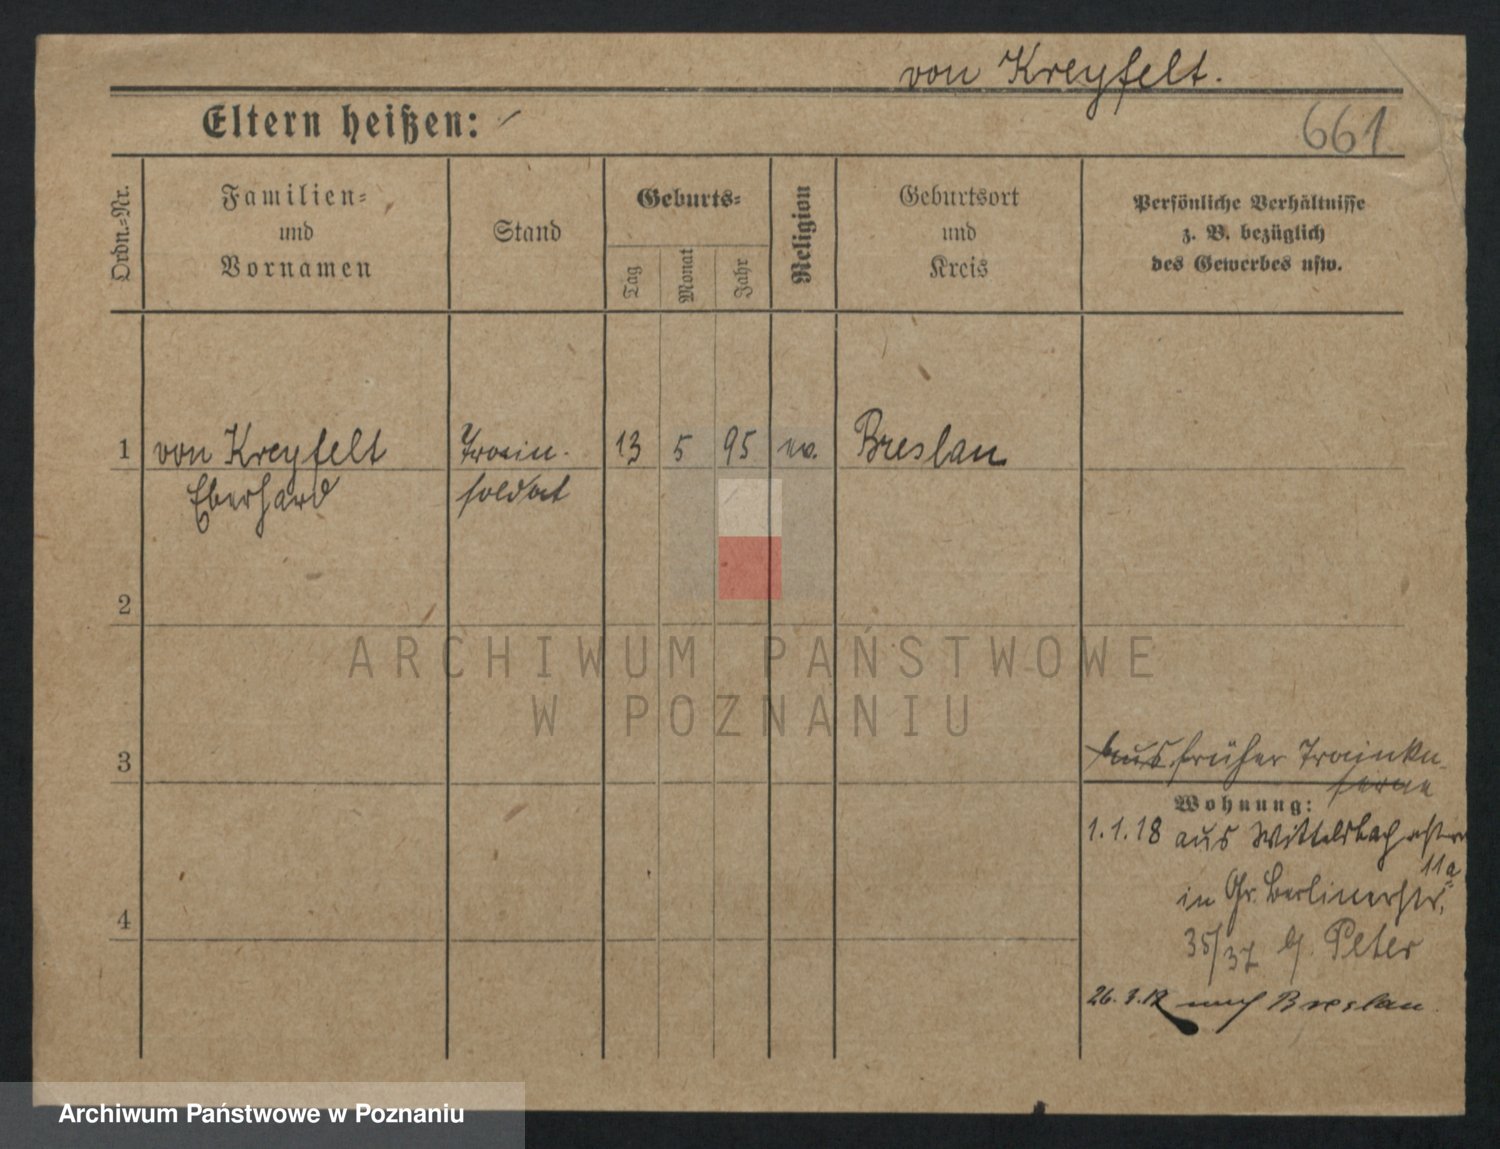 von Kreyfelt.
Eltern heißen:
661
Ordn.-Nr.
Familien-
und
Vornamen
Stand
Geburts-
Tag
Monat
Jahr
Religion
Geburtsort
und
Kreis
Persönliche Verhältnisse
z. B. bezüglich
des Gewerbes usw.
1 von Kreyfelt Train- 13 5 95 ev. Breslau
Eberhard soldat
2
ARCHIWUM PAŃSTWOWE
W POZNANIU
3
früher Trainka-
serne
Wohnung:
1.1.18 aus Wittelsbacherstr.
11a
in Gr. Berlinerstr.
35/37 b/ Peter
4
nach Breslau.
Archiwum Państwowe w Poznaniu